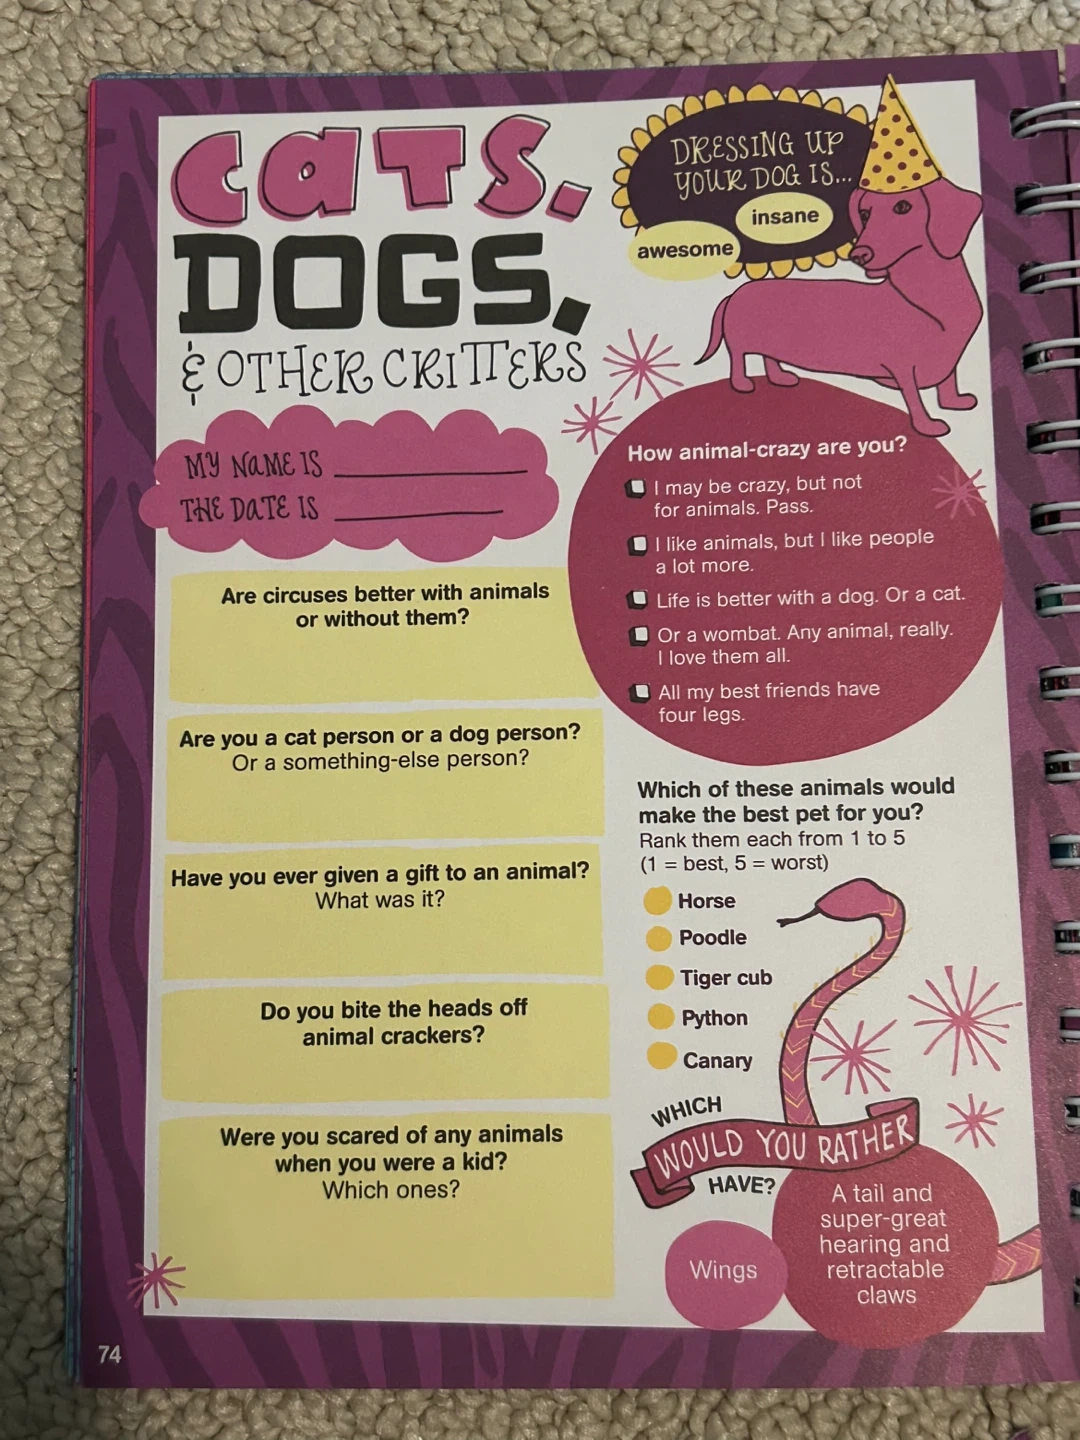 CATS.
DOGS.
& OTHER CRITTERS
MY NAME IS
THE DATE IS
DRESSING UP
YOUR DOG IS...
insane
awesome
How animal-crazy are you?
I may be crazy, but not
for animals. Pass.
I like animals, but I like people
a lot more.
Life is better with a dog. Or a cat.
Or a wombat. Any animal, really.
I love them all.
All my best friends have
four legs.
Are circuses better with animals
or without them?
Are you a cat person or a dog person?
Or a something-else person?
Have you ever given a gift to an animal?
What was it?
Do you bite the heads off
animal crackers?
Were you scared of any animals
when you were a kid?
Which ones?
Which of these animals would
make the best pet for you?
Rank them each from 1 to 5
(1 = best, 5 = worst)
Horse
Poodle
Tiger cub
Python
Canary
WHICH
WOULD YOU RATHER
HAVE?
Wings
A tail and
super-great
hearing and
retractable
claws
74